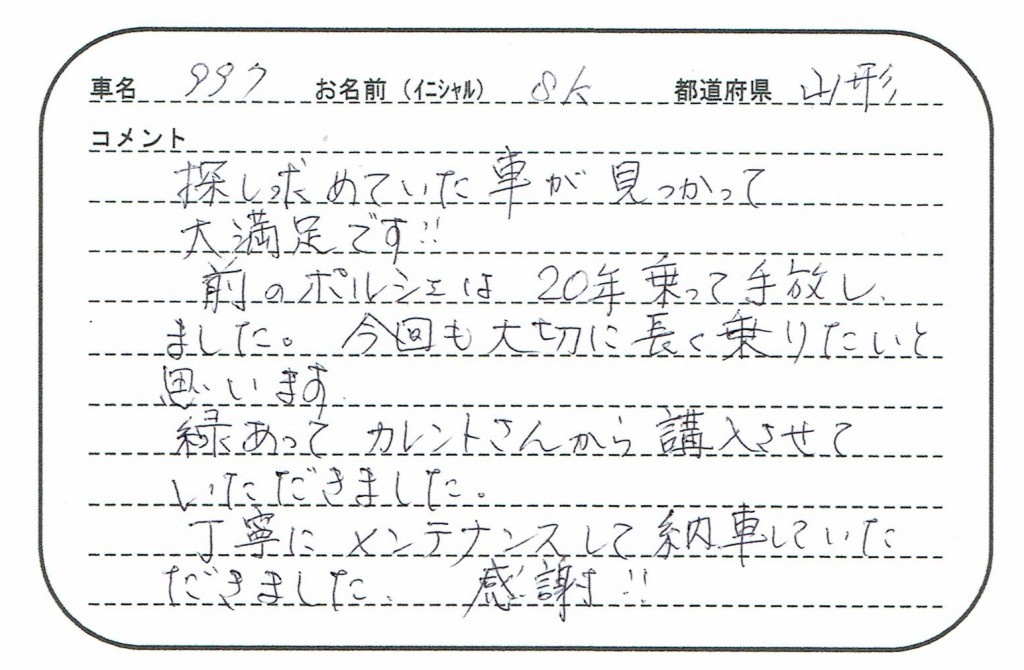 車名 997 お名前（イニシャル） SK 都道府県 山形
コメント
探し求めていた車が見つかって
大満足です!!
前のポルシェは 20年乗って手放し、
ました。 今回も大切に長く乗りたいと
思います
縁あって カレントさんから 講入させて
いただきました。
丁寧に メンテナンスして 納車していた
だきました、 感謝!!